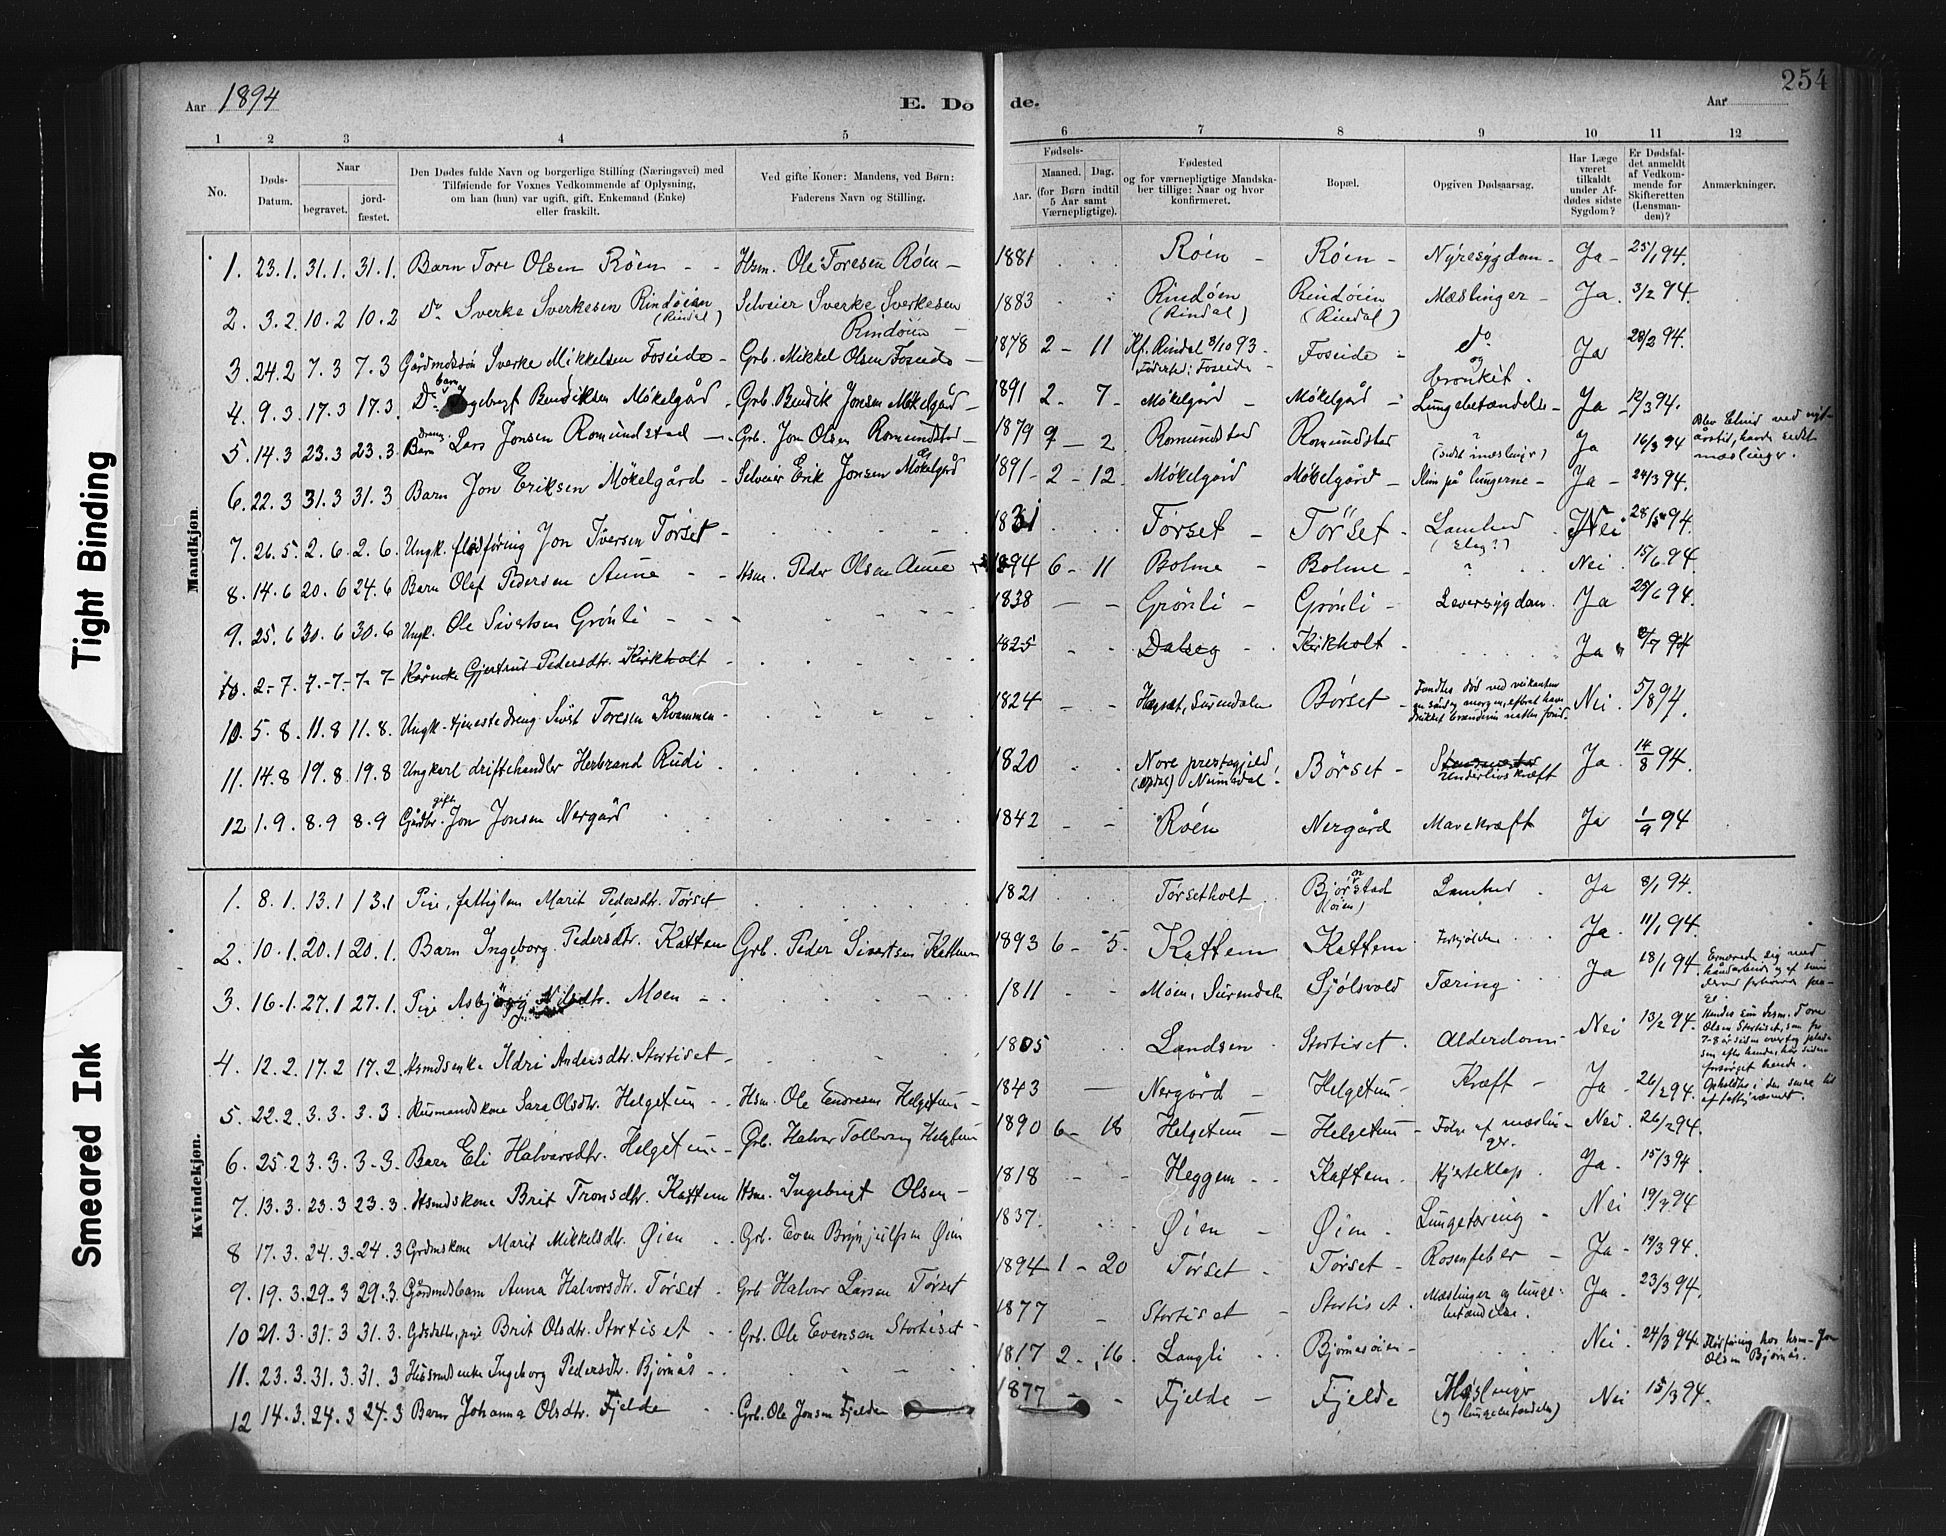 254
Aar 1894
E. Dø de.
Aar
1 2 3 4 5 6 7 8 9 10 11 12
No.
Døds-Datum.
Naar
begravet.
jord-fæstet.
Den Dødes fulde Navn og borgerlige Stilling (Næringsvei) med
Tilføiende for Voxnes Vedkommende af Oplysning,
om han (hun) var ugift, gift, Enkemand (Enke)
eller fraskilt.
Ved gifte Koner: Mandens, ved Børn:
Faderens Navn og Stilling.
Fødsels-
Aar. Maaned. Dag.
(for Børn indtil
5 Aar samt
Værnepligtige).
Fødested
og for værnepligtige Mandska-
ber tillige: Naar og hvor
konfirmeret.
Bopæl.
Opgiven Dødsaarsag.
Har Læge
været
tilkaldt
under Af-
dødes sidste
Sygdom?
Er Dødsfal-
det anmeldt
af Vedkom-
mende for
Skifteretten
(Lensman-
den)?
Anmærkninger.
Mandkjøn.
1. 23.1. 31.1. 31.1. Barn Tore Olsen Røen - - Hsm. Ole Toresen Røen - 1881 Røen - Røen - Nyresygdom - Ja - 25/1 94.
2. 3.2. 10.2 10.2 Do Sverke Sverkesen Rindøien (Rindal) Selveier Sverke Sverkesen Rindøien - 1883 Rindøen (Rindal) Rindøien (Rindal) Mæslinger - Ja. 3/2 94.
3. 24.2 7.3 7.3 Gårdmdssøn Sverke Mikkelsen Foseide - Grb. Mikkel Olsen Foseide - 1878 2 - 11 Kf. Rindal 8/10 93 - Fødested: Foseide - Foseide - do og bronkit. Ja 28/2 94.
4. 9.3. 17.3 17.3. Do barn Ingebrigt Bendiksen Møkelgård. Grb. Bendik Jonsen Møkelgård - 1891 2 - 7. Møkelgård Møkelgård - Lungebetændelse - Ja - 12/3 94.
5. 14.3 23.3 23.3. Barn dreng. Lars Jonsen Romundstad - Grb. Jon Olsen Romundstad - 1879 9 - 2 Romundstad Romundstad ? (sidst mæslinger) Ja 16/3 94 Blev blind ved nyt-årstid, havde sidst mæslinger.
6. 22.3 31.3 31.3 Barn Jon Eriksen Møkelgård - Selveier Erik Jonsen Møkelgård 1891 - 2 - 12. Møkelgård Møkelgård - Slim på lungerne - Ja - 24/3 94.
7. 26.5. 2.6. 2.6. Ungk. flødføring Jon Iversen Tørset - 1831 Tørset - Tørset - Lamhed (Slag?) Nei 28/5 94.
8. 14.6 20.6 24.6 Barn Olaf Pedersen Aune - - Hsm. Peder Olsen Aune 1894 6 - 11 Bolme - Bolme - ? Nei 15/6 94.
9. 25.6 30.6 30.6 Ungk. Ole Sivertsen Grønli - - - 1838 - - Grønli - Grønli - Leversygdom. Ja 25/6 94.
10. 2.-7. 7.-7. 7-7- Kårenke Gjertrud Pedersdtr. Kirkholt - 1825 - - Dalseg - Kirkholt - Ja 2/7 94
10. 5.8. 11.8 11.8. Ungk. tjenestedreng Sivert Toresen Kvammen - 1824 - - Børset - Fandtes død ved veikanten Nei. 5/8 94.
11. 14.8 19.8. 19.8 Ungkarl driftehandler Herbrand Rudi. 1820 Nore prestegjeld, (Opdal) Numedal. Børset - Underlivskræft Ja. 14/8 94.
12 1.9. 8.9 8.9 Gårdbr. gift Jon Jonsen Nergård 1842 - - Røen Nergård Mavekræft Ja 1/9 94
Kvindekjøn.
1. 8.1. 13.1 13.1 Pige, fattiglem Marit Pedersdtr. Tørset 1821 Tørsetholt Bjørnstad (øien) Lamhed. Ja 8/1 94.
2. 10.1. 20.1 20.1. Barn Ingeborg Pedersdtr. Kattem Grb. Peder Sivertsen Kattem 1893 6 - 5. Kattem Kattem. Forkjølelse Ja. 11/1 94.
3. 16.1. 27.1 27.1. Pige Asbjørg Nilsdtr. Moen - 1811 - - Moen, Surendalen Sjølsvold Tæring. Ja 18/1 94 Ernærede sig med håndarbeide
4. 12.2. 17.2 17.2. Hsmdsenke Ildri Andersdtr. Stortiset - 1805 Landsen Stortiset. Alderdom - Nei 13/2 94. Hendes søn hsm. Tore Olsen Stortiset, som for 7-8 år siden overtog pladsen efter hende, har siden forsørget hende.
5. 22.2. 3.3. 3.3. Husmandskone Sara Olsdtr. Helgetun - Hsm. Ole Endresen Helgetun - 1843 - Nergård - Helgetun - Kræft - Ja - 26/2 94. Opholdtes i den senere tid af fattigvæsenet.
6. 25.2 3.3. 3.-3. Barn Eli Halvorsdtr. Helgetun - Grb. Halvor Tollevsen Helgetun 1890 6 - 18 Helgetun - Helgetun - Følge af mæslinger. Nei. 26/2 94.
7. 13.3. 23.3 23.3. Hsmdskone Brit Tronsdtr. Kattem Hsm. Ingebrigt Olsen - 1818 - - Heggem - Kattem. Hjerteklap. Ja. 15/3 94
8 17.3. 24.3. 24.3 Grdmskone Marit Mikkelsdtr. Øien - Grb. Even Brynjulfsen Øien 1837. Øien - Øien. Lungetæring - Nei 19/3 94
9. 19.3. 29.3 29.3. Gårdmdsbarn Anna Halvorsdtr. Tørset - Grb Halvor Larsen Tørset 1894 1 - 20 Tørset - Tørset - Rosenfeber - Ja - 19/3 94.
10 21.3. 31.3 31.3. Gdsdatter, pige Brit Olsdtr. Stortiset - Grb. Ole Evensen Stortiset - 1877 - Stortiset - Stortiset. Mæslinger og lunge-betændelse. Ja. 23/3 94.
11. 23.3. 31.3. 31.3 Husmdsenke Ingeborg Pedersdtr. Bjørnås - - 1817 2 - 16. Langli Bjørnåsøien - Nei. 24/3 94. Flødføring hos hsm. Jon Olsen Bjørnås.
12 14.3. 24.3 24.3 Barn Johanna Olsdtr. Fjelde - Grb. Ole Jonsen Fjelde 1877 - - Fjelde - Fjelde Mæslinger (og lungebetændelse) Nei 15/3 94.
Tight Binding
Smeared Ink